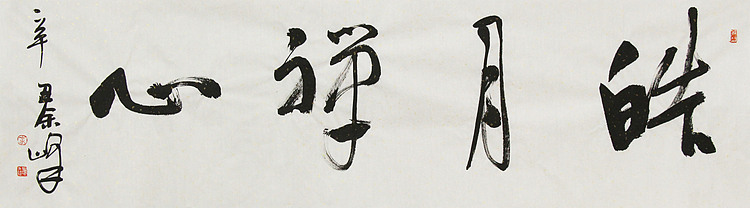 皓月禅心
辛
峰